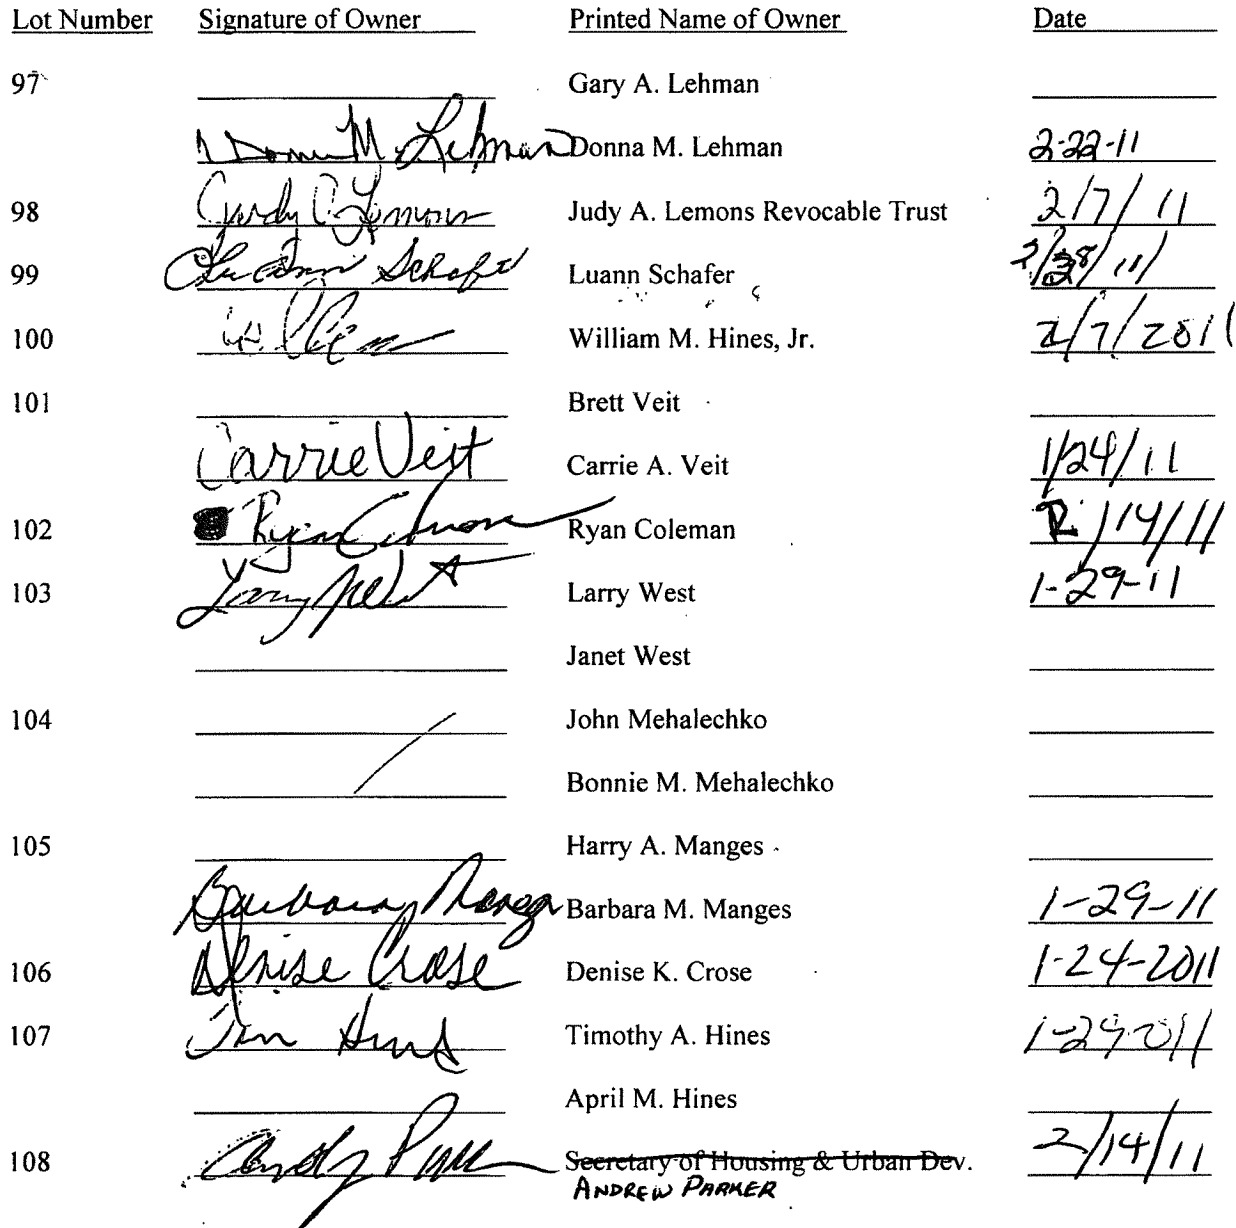 Lot Number Signature of Owner Printed Name of Owner Date
97 Gary A. Lehman
Donna M. Lehman Donna M. Lehman 2-22-11
98 Judy A. Lemons Judy A. Lemons Revocable Trust 2/7/11
99 LuAnn Schafer Luann Schafer 2/28/11
100 William M. Hines, Jr. 2/7/2011
101 Brett Veit
Carrie Veit Carrie A. Veit 1/24/11
102 Ryan Coleman Ryan Coleman 2/14/11
103 Larry West Larry West 1-29-11
Janet West
104 John Mehalechko
Bonnie M. Mehalechko
105 Harry A. Manges
Barbara Manges Barbara M. Manges 1-29-11
106 Denise Crose Denise K. Crose 1-24-2011
107 Tim Hines Timothy A. Hines 1-29-011
April M. Hines
108 Andy Parker Secretary of Housing & Urban Dev. 2/14/11
ANDREW PARKER